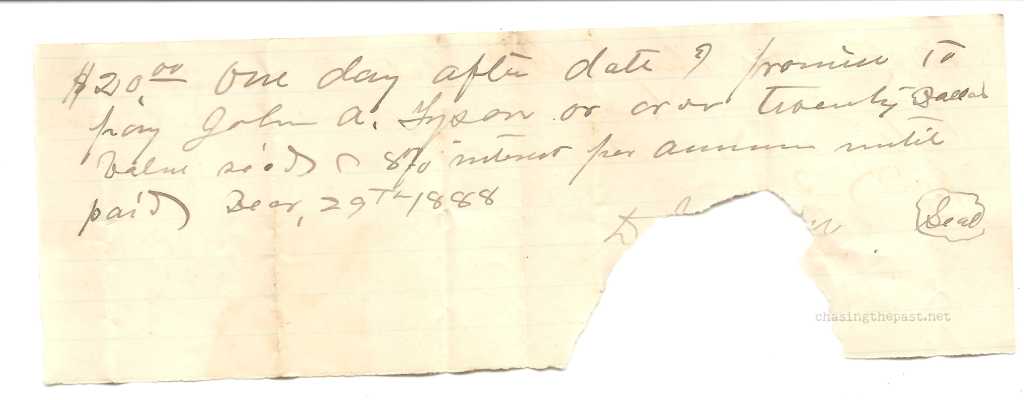 $20⁰⁰ One day after date I promise To
pay John A. Tyson or oror Twenty Dollar
Value rec'd 8% interest per annum until
paid Decr, 29Th 1888
Seal
chasingthepast.net